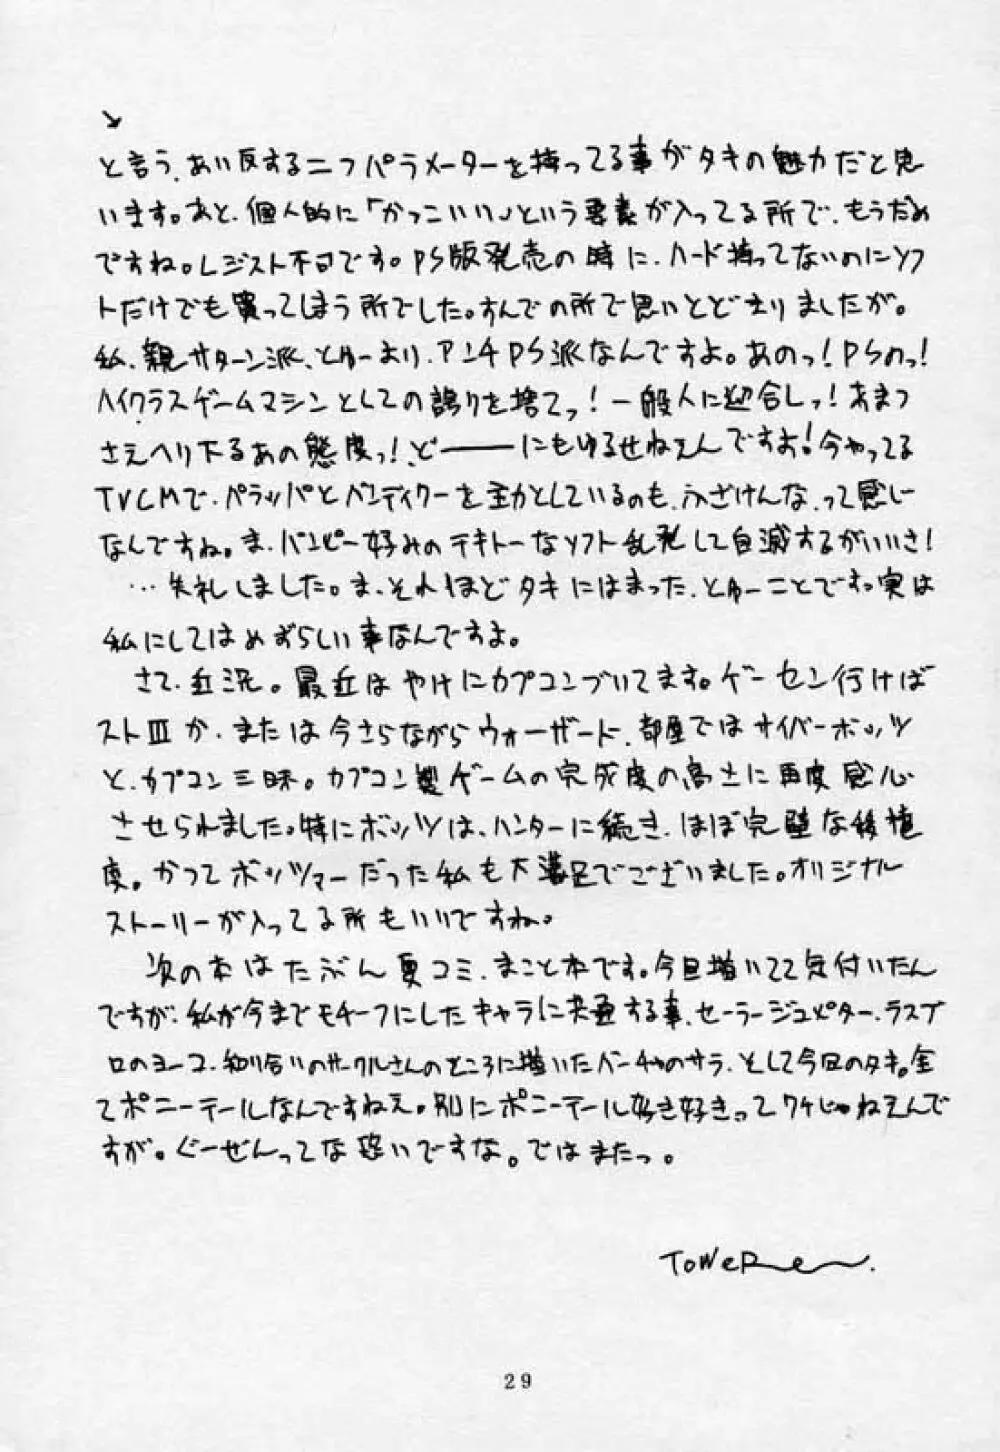 と言う、あい反する二つパラメーターを持ってる事がタキの魅力だと思
います。あと、個人的に「かっこいい」という要素が入ってる所で、もうだめ
ですね。レジスト不可です。PS版発売の時に、ハード持ってないのにソフ
トだけでも買ってしまう所でした。すんでの所で思いとどまりましたが。
私、親サターン派、とゆーより、アンチPS派なんですよ。あのっ!PSのっ!
ハイクラスゲームマシンとしての誇りを捨てっ!一般人に迎合しっ!あまつ
さえへり下るあの態度っ!、ど──にもゆるせねぇんですよ!今やってる
TVCMで、パラッパとバンディクーを主力としているのも、ふざけんな、って感じ
なんですね。ま、パンピー好みのテキトーなソフト乱発して自滅するがいいさ!
…失礼しました。ま、それほどタキにはまった、とゆーことです。実は
私にしてはめずらしい事なんですよ。
さて、近況。最近はやけにカプコンづいてます。ゲーセン行けば
ストⅢか、または今さらながらウォーザード、部屋ではサイバーボッツ
と、カプコン三昧。カプコン製ゲームの完成度の高さに再度感心
させられました。特にボッツは、ハンターに続き、ほぼ完璧な移植
度。かつてボッツマーだった私も大満足でございました。オリジナル
ストーリーが入ってる所もいいですね。
次の本はたぶん夏コミ、まこと本です。今回描いてて気付いたん
ですが、私が今までモチーフにしたキャラに共通する事、セーラージュピター、ラスブ
ロのヨーコ、知り合いのサークルさんのところに描いたバーチャのサラ、そして今回のタキ。全
てポニーテールなんですねえ。別にポニーテール好き好きってワケじゃねえんで
すが。ぐーぜんってな恐いですな。ではまたっ。
29